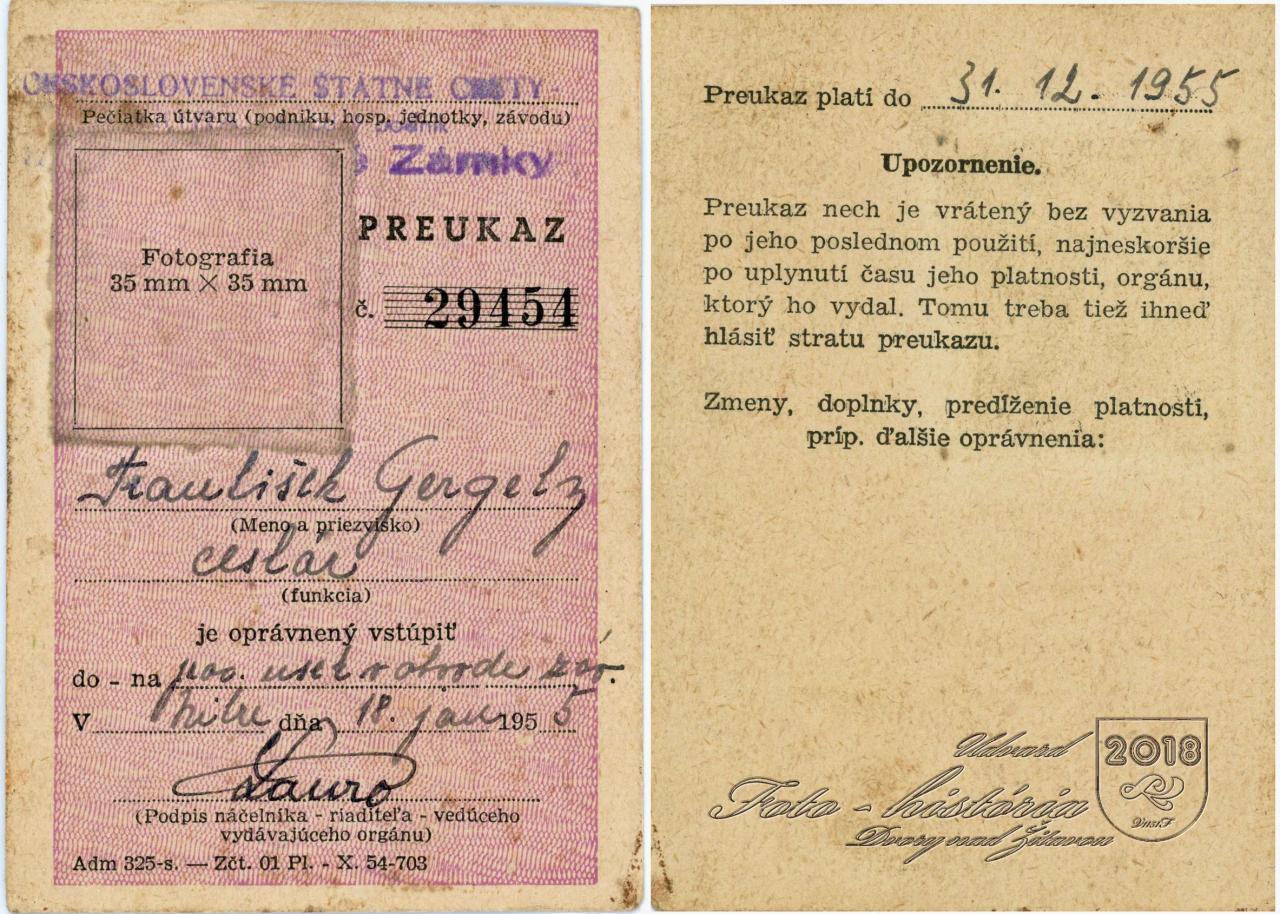 ČESKOSLOVENSKÉ ŠTÁTNE CESTY
Pečiatka útvaru (podniku, hosp. jednotky, závodu)
Zámky
Fotografia
35 mm × 35 mm
PREUKAZ
č. 29454
František Gergely
(Meno a priezvisko)
cestár
(funkcia)
je oprávnený vstúpiť
do - na v obvode
V Nitre dňa 18. jan. 1955
Lauro
(Podpis náčelníka - riaditeľa - vedúceho
vydávajúceho orgánu)
Adm 325-s. — Zčt. 01 Pl. - X. 54-703
Preukaz platí do 31. 12. 1955
Upozornenie.
Preukaz nech je vrátený bez vyzvania
po jeho poslednom použití, najneskoršie
po uplynutí času jeho platnosti, orgánu,
ktorý ho vydal. Tomu treba tiež ihneď
hlásiť stratu preukazu.
Zmeny, doplnky, predĺženie platnosti,
príp. ďalšie oprávnenia:
Udvard
2018
Foto - história
Dvory nad Žitavou